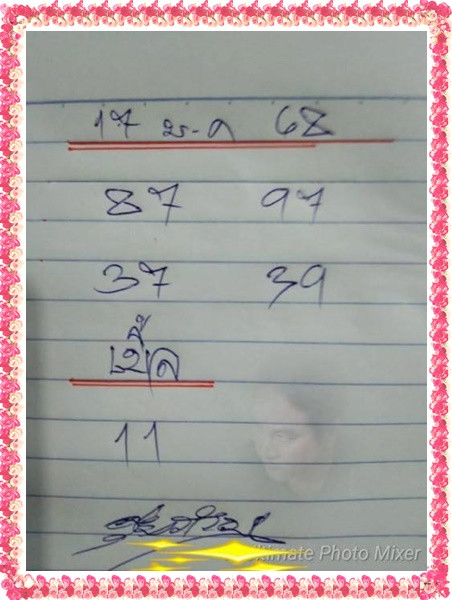 17 ม.ค 68
87 97
37 39
เบิ้ล
11
Ultimate Photo Mixer